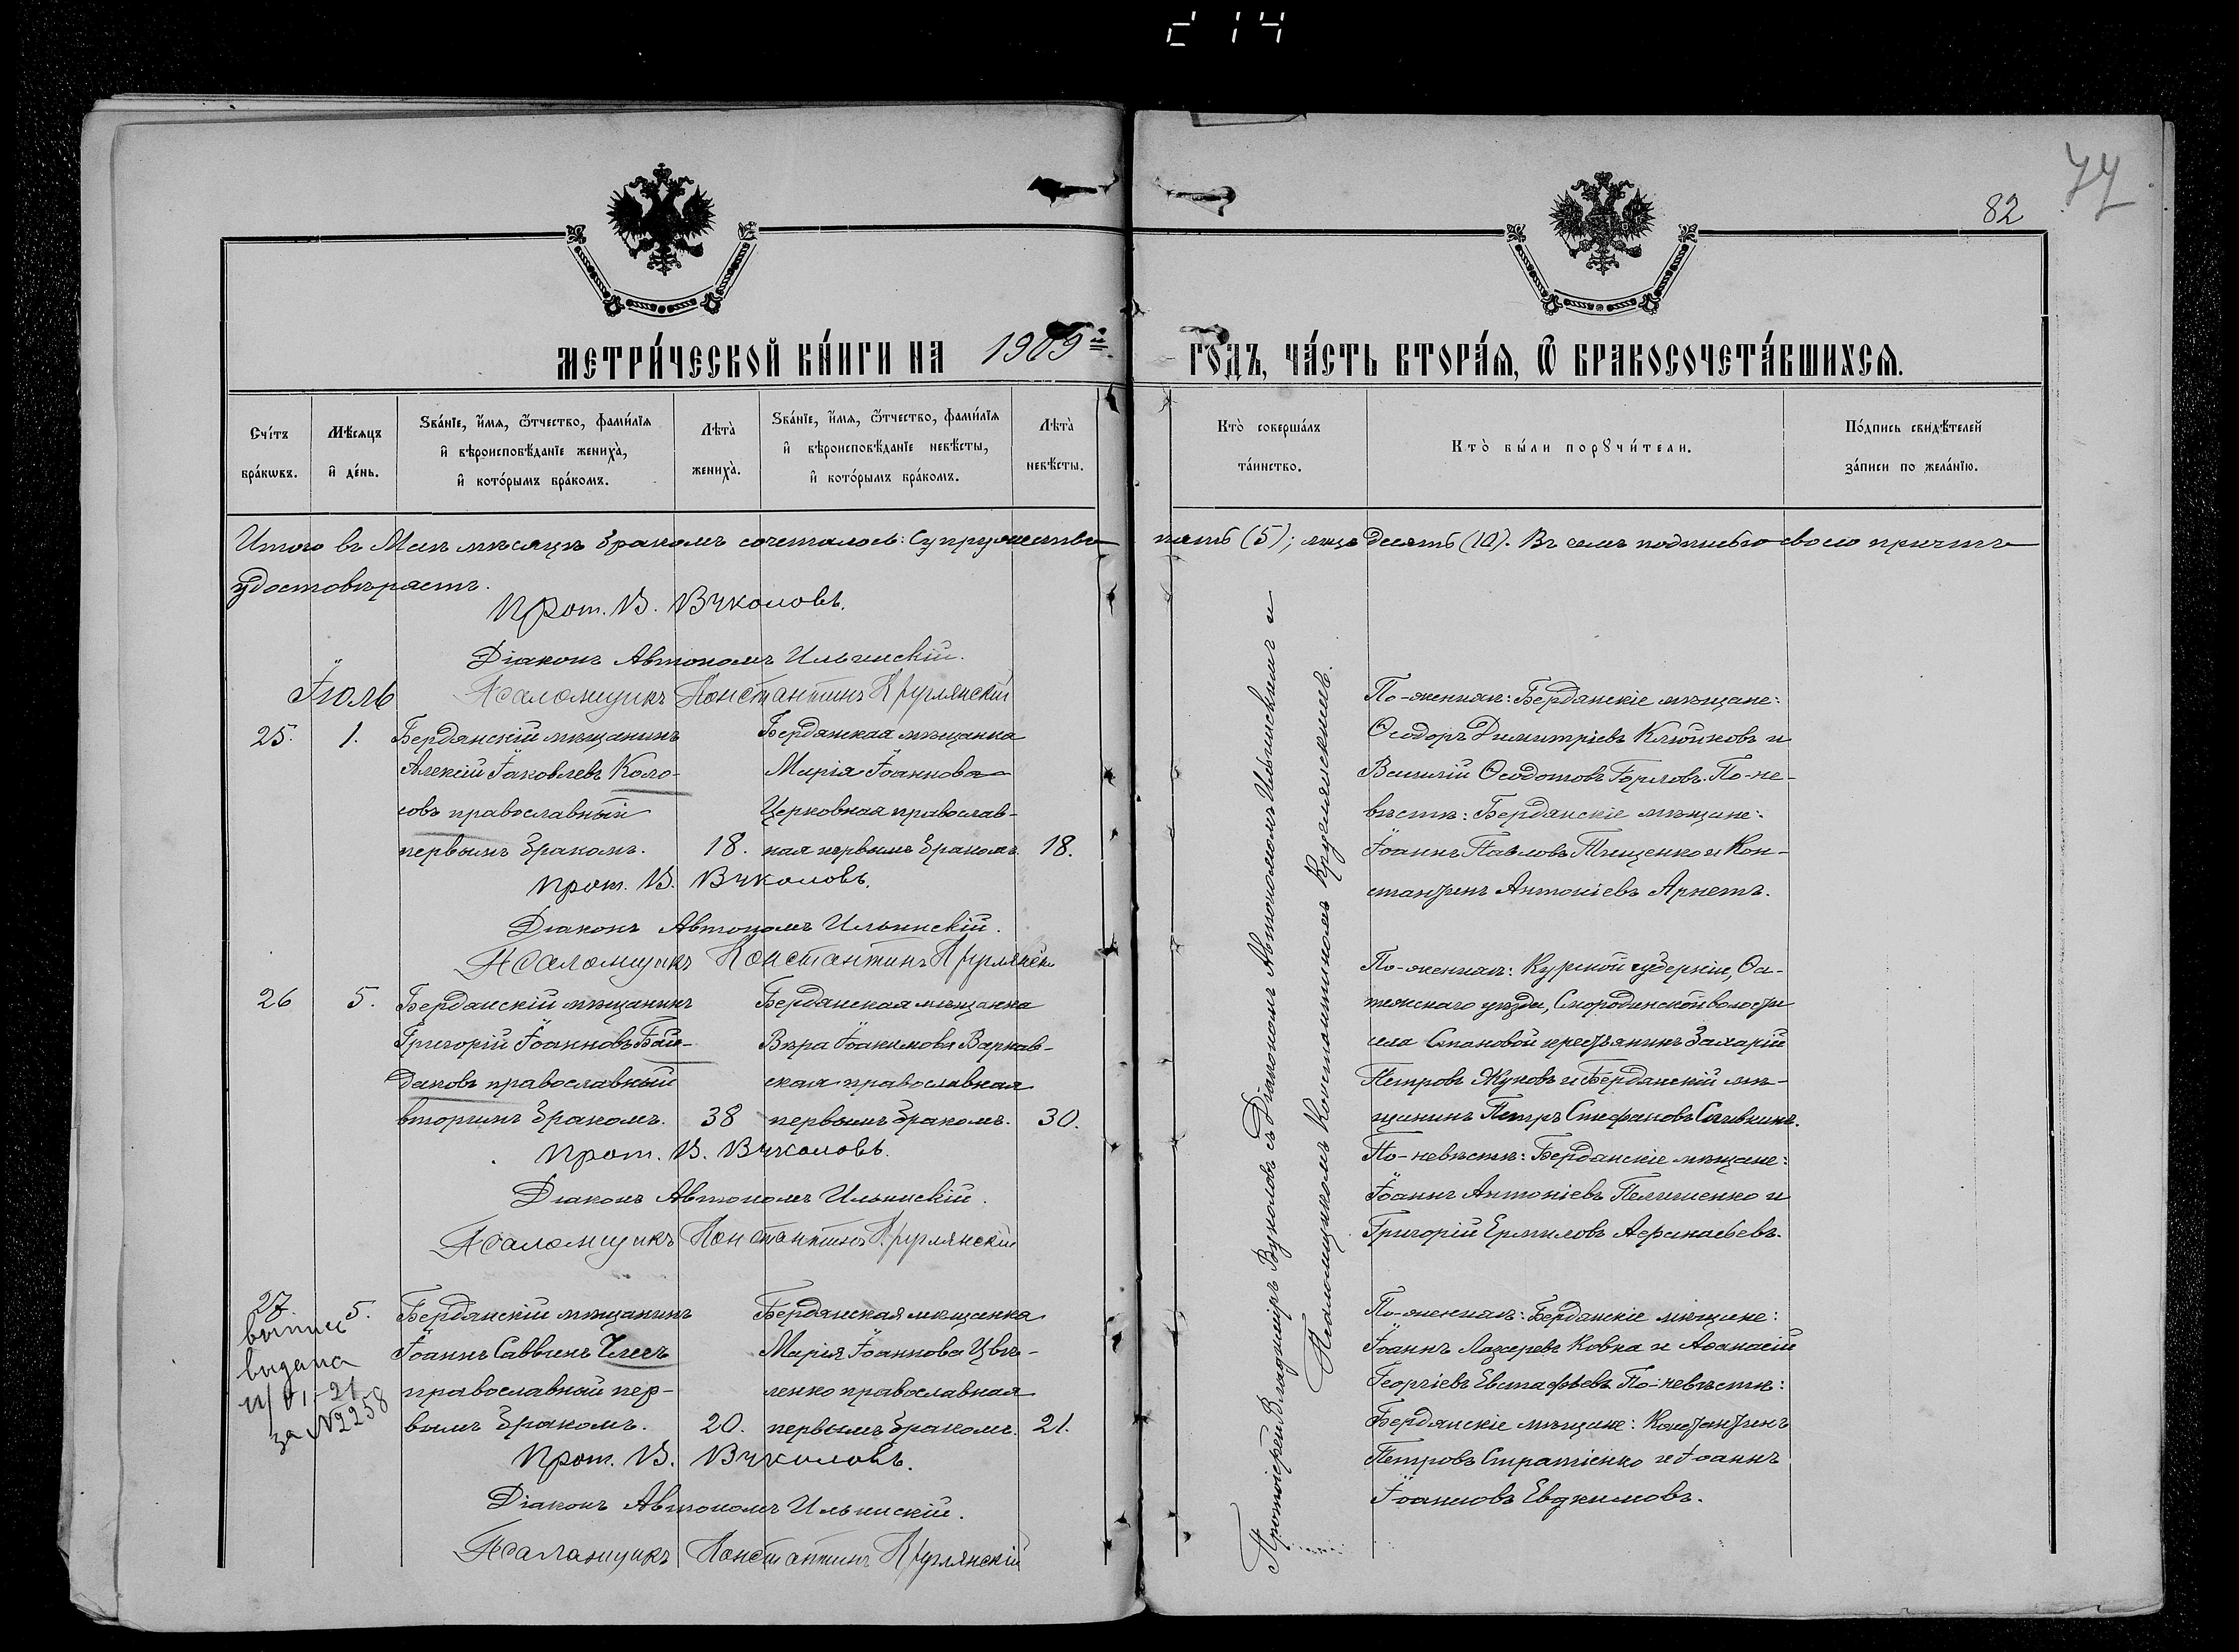 214
77
82
МЕТРИ́ЧЕСКОЙ КНИ́ГИ НА 1909й
ГОДЪ, ЧА́СТЬ ВТОРА́Ѧ, Ѽ БРАКОСОЧЕТА́ВШИХСѦ.
Сче́тъ бра́кѡвъ.
Мѣ́сѧцъ и҆ де́нь.
Ѕва́нїе, и҆́мѧ, ѻ҆́тчество, фами́лїѧ и҆ вѣроисповѣ́данїе жениха̀, и҆ кото́рымъ бра́комъ.
Лѣта̀ жениха̀.
Ѕва́нїе, и҆́мѧ, ѻ҆́тчество, фами́лїѧ и҆ вѣроисповѣ́данїе невѣ́сты, и҆ кото́рымъ бра́комъ.
Лѣта̀ невѣ́сты.
Кто̀ соверша́лъ та́инство.
Кто̀ бы́ли порꙋчи́тели.
По́дпись свидѣ́телей за́писи по жела́нїю.
Итого въ Маѣ мѣсяцѣ бракомъ сочеталось: Супружество пять (5); лицъ десять (10). Въ семъ подписью своею причтъ
удостовѣряетъ.
Прот. В. Вуколовъ.
Діаконъ Автономъ Ильинскій.
Псаломщикъ Константинъ Круглянскій
Іюль
25. 1.
Бердянскій мѣщанинъ
Алексій Іаковлевъ Коло-
совъ православный
первымъ бракомъ. 18.
Бердянская мѣщанка
Марія Іоаннова
Церковная православ-
ная первымъ бракомъ. 18.
По-женихѣ: Бердянскіе мѣщане:
Ѳеодоръ Димитріевъ Клюйковъ и
Василій Ѳеодотовъ Горловъ. По-не-
вѣстѣ: Бердянскіе мѣщане:
Іоаннъ Павловъ Тищенко и Кон-
стантинъ Антоніевъ Арнетъ.
Прот. В. Вуколовъ.
Діаконъ Автономъ Ильинскій.
Псаломщикъ Константинъ Круглянскій
26 5.
Бердянскій мѣщанинъ
Григорій Іоанновъ Бай-
даковъ православный
вторымъ бракомъ. 38
Бердянская мѣщанка
Вѣра Іоакимова Варнав-
ская православная
первымъ бракомъ. 30.
По-женихѣ: Курской губерніи, Фа-
тежскаго уѣзда, Смородинской волости
села Становой крестьянинъ Захарій
Петровъ Жуковъ и Бердянскій мѣ-
щанинъ Петръ Стефановъ Сливкинъ.
По-невѣстѣ: Бердянскіе мѣщане:
Іоаннъ Антоніевъ Пелишенко и
Григорій Ермиловъ Аѳанасьевъ.
Прот. В. Вуколовъ.
Діаконъ Автономъ Ильинскій.
Псаломщикъ Константинъ Круглянскій
27. 5.
выпись
выдана
11/VI-21
за №2258
Бердянскій мѣщанинъ
Іоаннъ Саввинъ
православный пер-
вымъ бракомъ. 20.
Бердянская мѣщанка
Марія Іоаннова Цви-
ленко православная
первымъ бракомъ. 21.
По-женихѣ: Бердянскіе мѣщане:
Іоаннъ Лазаревъ Ковка и Аѳанасій
Георгіевъ Евстафьевъ. По-невѣстѣ:
Бердянскіе мѣщане: Константинъ
Петровъ Стратіенко и Іоаннъ
Іоанновъ Евдкимовъ.
Прот. В. Вуколовъ.
Діаконъ Автономъ Ильинскій.
Псаломщикъ Константинъ Круглянскій
Протоіерей Владимиръ Вуколовъ съ Діакономъ Автономомъ Ильинскимъ и
Псаломщикомъ Константиномъ Круглянскимъ.